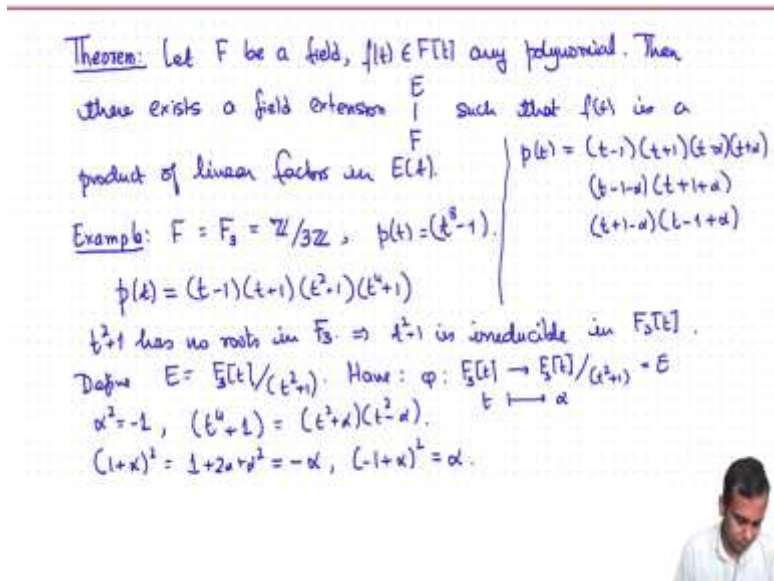 Theorem: Let F be a field, f(t) ∈ F[t] any polynomial. Then
there exists a field extension E | F such that f(t) is a
product of linear factors in E(t).
Example: F = F₃ = ℤ/3ℤ, p(t) = (t⁸-1).
p(t) = (t-1)(t+1)(t²+1)(t⁴+1)
t²+1 has no roots in F₃. ⇒ t²+1 is irreducible in F₃[t].
Define E = F₃[t]/(t²+1). Have: φ: F₃[t] → F₃[t]/(t²+1) = E
t ↦ α
α² = -1, (t⁴+1) = (t²+α)(t²-α).
(1+α)² = 1+2α+α² = -α, (-1+α)² = α.
p(t) = (t-1)(t+1)(t-α)(t+α)
(t-1-α)(t+1+α)
(t+1-α)(t-1+α)